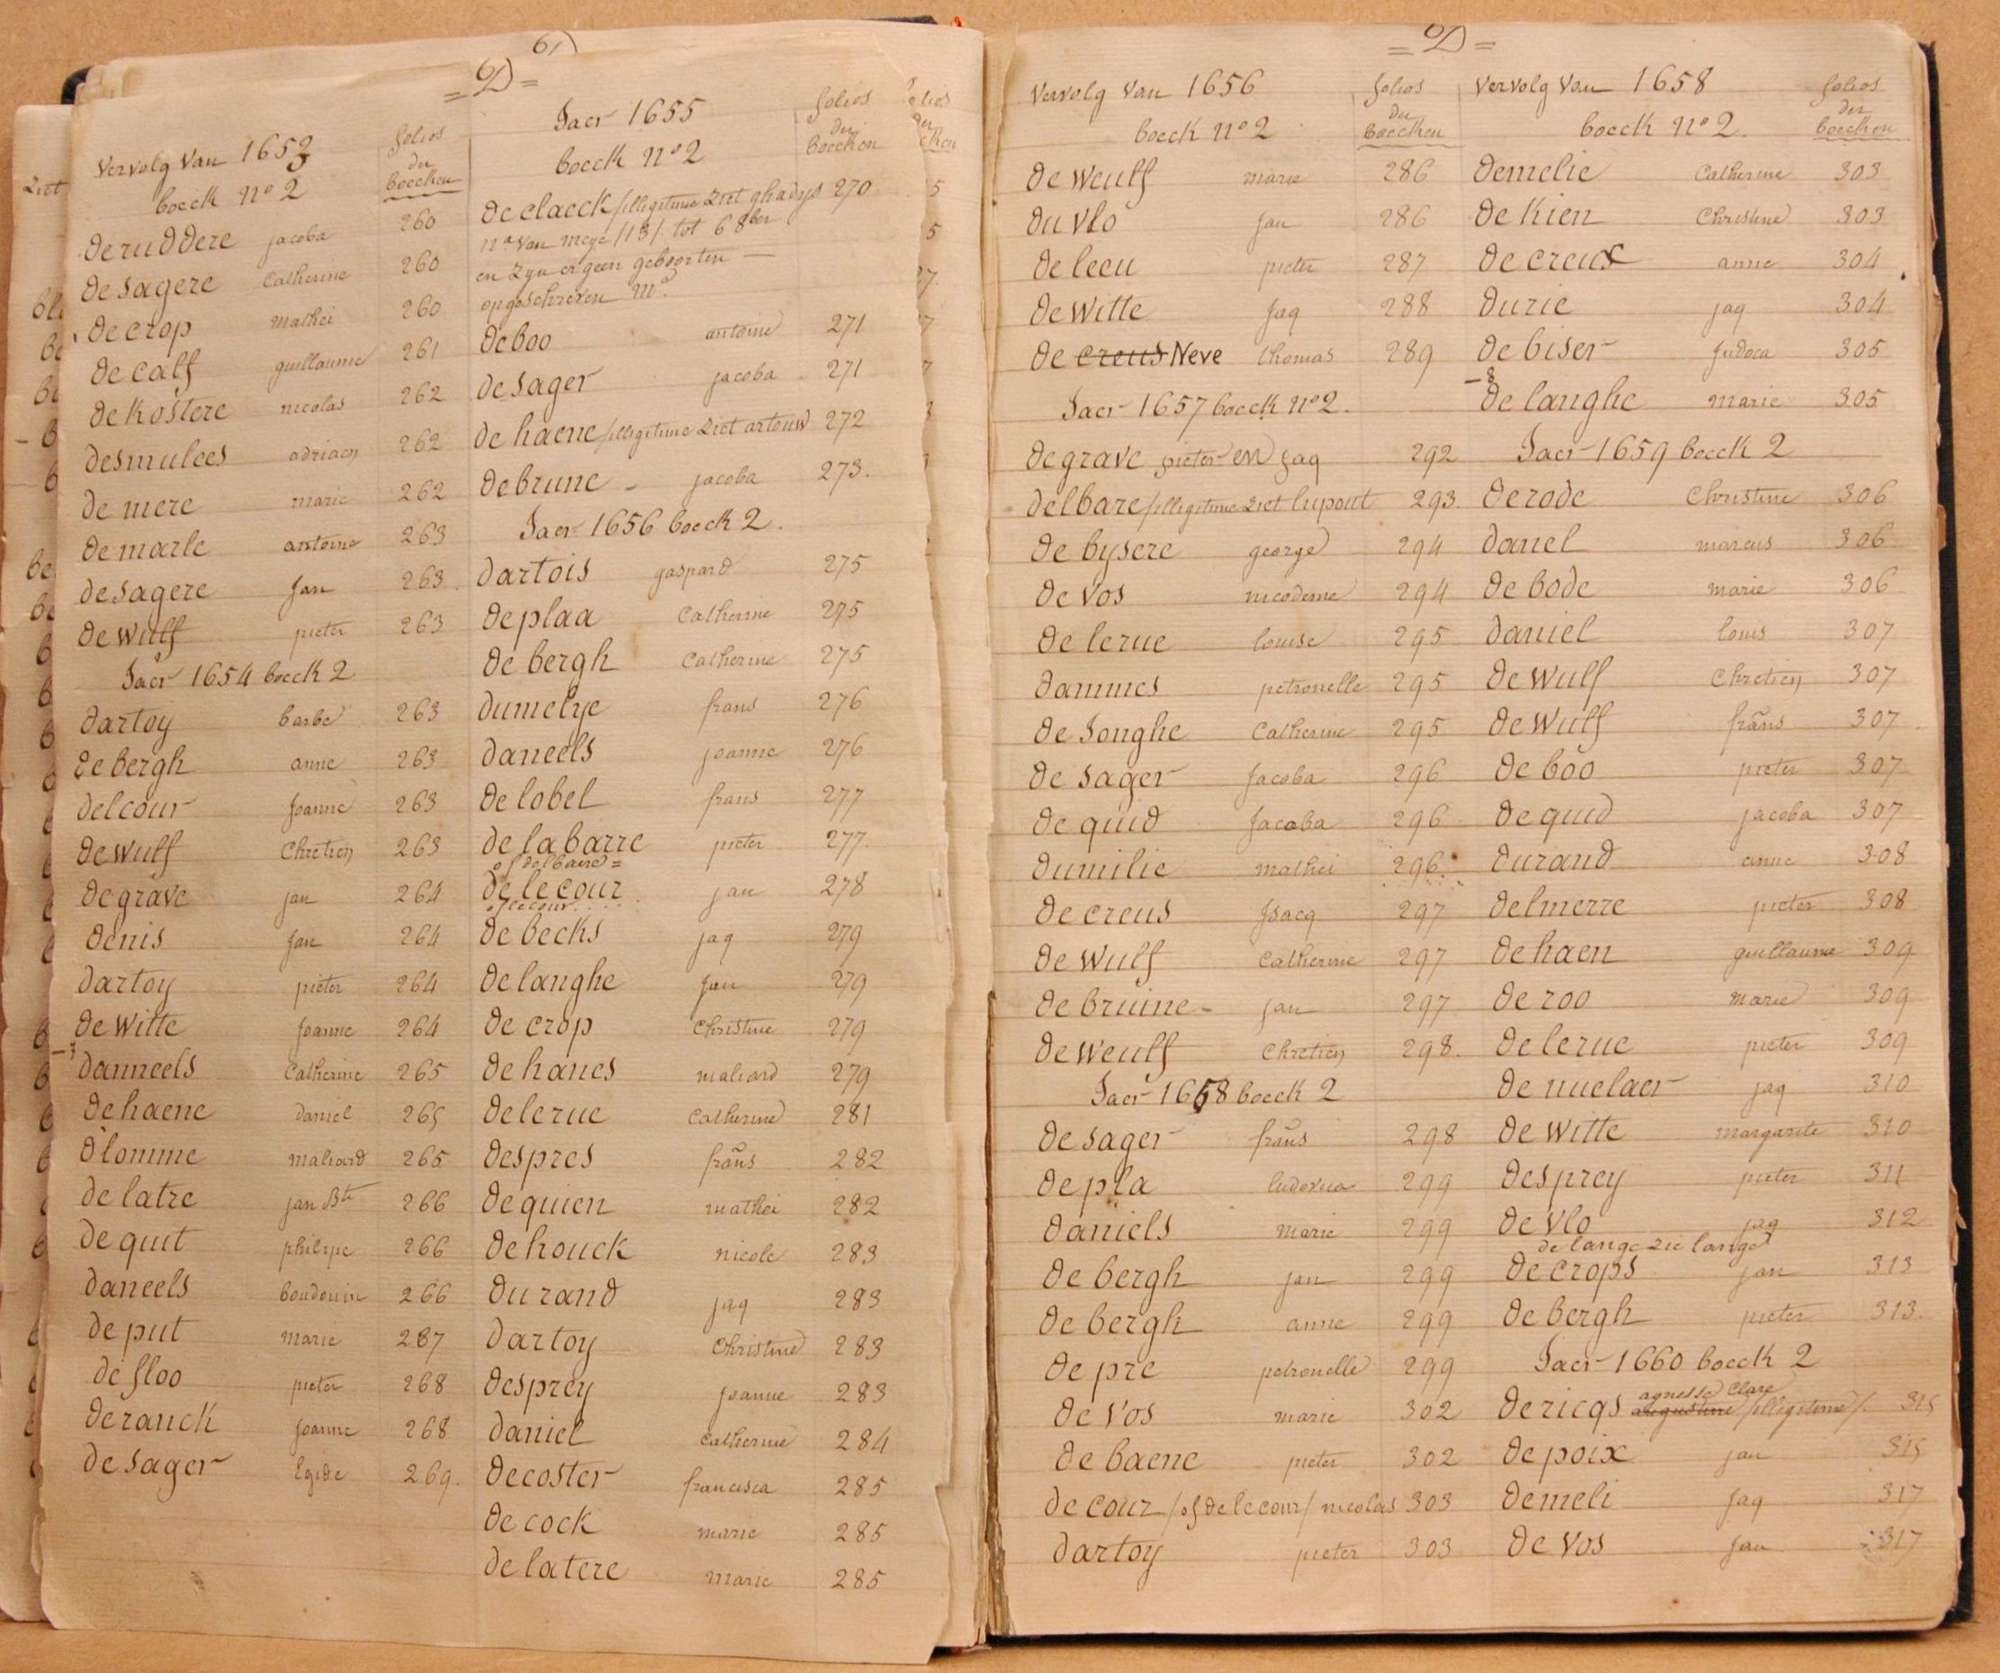 = D =
vervolg van 1653
boeck nº 2
folios
der
boecken
deruddere jacoba 260
desagere Catherine 260
decrop mathei 260
decalf guillaume 261
dekostere nicolas 262
desmulees adriaen 262
de mere marie 262
demarle antoine 263
desagere Jan 263
dewulf pieter 263
Jaer 1654 boeck 2
dartoy barbe 263
debergh anne 263
delcour Joanne 263
dewulf Chretien 263
degrave jan 264
denis Jan 264
dartoy pieter 264
dewitte Joanne 264
danneels Catherine 265
dehaene daniel 265
dlomme maliard 265
delatre jan Bte 266
dequit philipe 266
daneels boudouin 266
deput marie 267
defloo pieter 268
deranck Joanne 268
desager Egide 269.
Jaer 1655
boeck nº 2
folios
der
boecken
declaeck /illegitime ziet ghadys 270
na van meye /13/ tot 6 8ber
en zyn er geen geboorten —
opgeschreven
deboo antoine 271
desager jacoba 271
dehaene /illegitime ziet artouw 272
debrune - jacoba 273.
Jaer 1656 boeck 2.
dartois gaspard 275
deplaa Catherine 275
debergh Catherine 275
dumelye frans 276
daneels joanne 276
delobel frans 277
delabarre pieter 277
of delbaere =
delecour jan 278
of lecour
debecks jaq 279
delanghe Jan 279
decrop Christine 279
dehanes maliard 279
delerue Catherine 281
despres frans 282
dequien mathei 282
dehouck nicole 283
durand jaq 283
dartoy Christine 283
desprey joanne 283
daniel Catherine 284
decoster francisca 285
decock marie 285
delatere marie 285
= D =
vervolg van 1656
boeck nº 2
folios
der
boecken
deweulf marie 286
duvlo jan 286
deleeu pieter 287
dewitte Jaq 288
de creus Neve thomas 289
Jaer 1657 boeck nº 2.
degrave pieter en Jaq 292
delbare /illegitime ziet lupout 293.
debysere george 294
devos nicodeme 294
delerue louise 295
dammes petronelle 295
desonghe Catherine 295
desager Jacoba 296
dequid Jacoba 296
dumilie mathei 296
decreus Isacq 297
dewulf Catherine 297
debruine - jan 297
deweulf Chretien 298.
Jaer 1658 boeck 2
desager frans 298
depla ludovica 299
daniels marie 299
debergh jan 299
debergh anne 299
depre petronelle 299
devos marie 302
debaene pieter 302
decour /of delecour/ nicolas 303
dartoy pieter 303
vervolg van 1658
boeck nº 2.
folios
der
boecken
demelie Catherine 303
dekien Christine 303
decreus anne 304
durie jaq 304
debiser Judoca 305
delanghe marie 305
Jaer 1659 boeck 2
derode Christine 306
danel marcus 306
debode marie 306
daniel louis 307
dewulf Chretien 307
dewulf frans 307
deboo pieter 307
dequid jacoba 307
durand anne 308
delmerre pieter 308
dehaen guillaume 309
deroo marie 309
delerue pieter 309
demuelaer jaq 310
dewitte margarite 310
desprey pieter 311
devlo jaq 312
de lange zie lange
decrops jan 313
debergh pieter 313.
Jaer 1660 boeck 2
agnesse Clare
dericqs augustine /illegitime/. 315
depoix jan 315
demeli Jaq 317
devos Jan 317